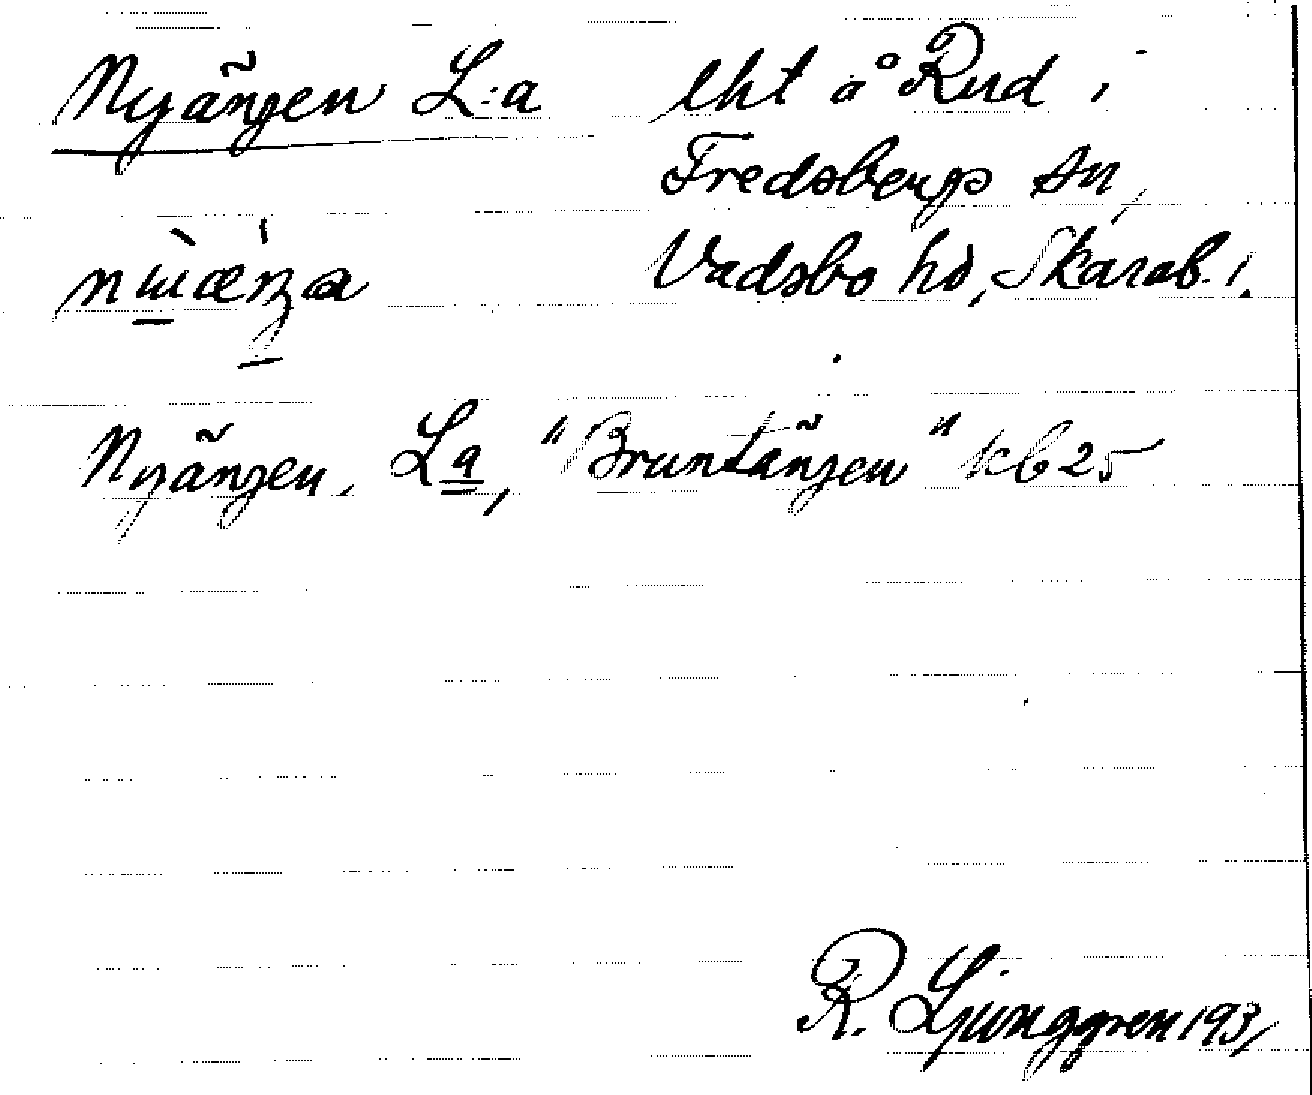 Nyängen L:a lht å Rud i
Fredsbergs sn,
Vadsbo hd, Skarab. l.
Nyängen, La, "Bruntängen" kb 25
R. Ljunggren 1931